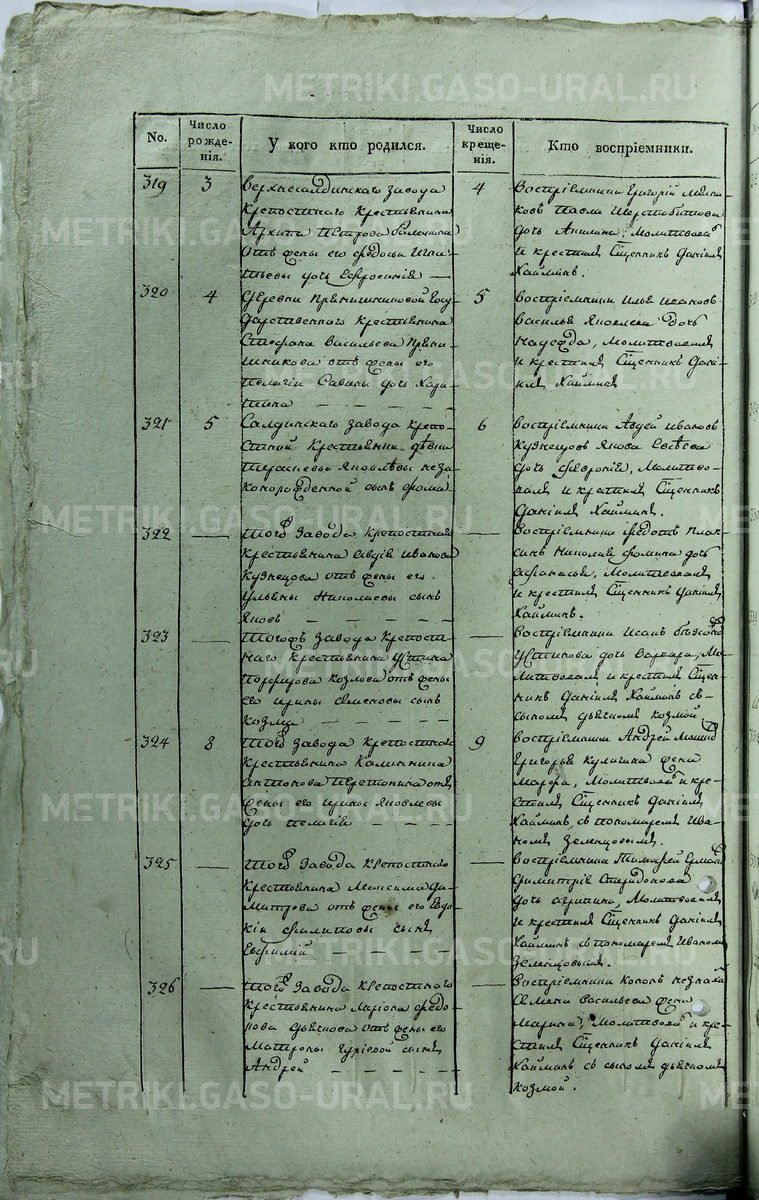 METRIKI.GASO-URAL.RU
No.
Число рожде-
нія.
У кого кто родился.
Число
креще-
нія.
Кто воспріемники.
319
3
Верхнесалдинскаго завода
Крепостнаго Крестьянина
Архипа Петрова
отъ жены его Федосьи Игна-
тьевы дочь Евфросинія —
4
Воспріемники Григорій
Павла
дочь Анисья, Молитвовалъ
и крестилъ Сщенникъ Даніилъ
Хаймин.
320
4
Деревни Прянишниковой Госу-
дарственнаго Крестьянина
Стефана Васильева Пряни-
шникова отъ жены его
Пелагіи Савины дочь Хари-
тина
5
Воспріемники Илья Ивановъ
Василья Яковлева дочь
Надежда, Молитвовалъ
и крестилъ Сщенникъ Дані-
илъ Хайминъ
321
5
Салдинскаго завода крепо-
стной Крестьянки девки
Яковлевы неза-
коннорожденной сынъ Фома
6
Воспріемники Авдей Ивановъ
Кузнецовъ Якова Евсеева
дочь Феврония, Молитво-
валъ и крестилъ Сщенникъ
Даніилъ Хайминъ.
322
—
Тогожъ Завода Крепостнаго
Крестьянина Авдія Иванова
Кузнецова отъ жены его
Ульяны Николаевы сынъ
Яковъ
—
Воспріемники Федотъ
Николая Фомина дочь
Афанасья, Молитвовалъ
и крестилъ Сщенникъ Даніилъ
Хайминъ.
323
—
Тогожъ Завода Крепост-
наго Крестьянина Устина
Порфирова Козлова отъ жены
его Ирины Семеновы сынъ
Козма
—
Воспріемники Исакъ
Устинова дочь Варвара, Мо-
литвовалъ и крестилъ Сщен-
никъ Даніилъ Хайминъ съ
сыномъ дьячкомъ Козмой
324
8
Тогожъ Завода Крепостнаго
Крестьянина Калинина
Антонова отъ
жены его Ирины Яковлевы
дочь Пелагія
9
Воспріемники Андрей
Григорья Кулигина жена
Марфа, Молитвовалъ и кре-
стилъ Сщенникъ Даніилъ
Хайминъ, съ пономаремъ Ива-
номъ Земенцовымъ.
325
—
Тогожъ Завода Крепостнаго
Крестьянина Максима Ди-
митрова отъ жены его Евдо-
кіи Филиповы сынъ
Евфимій
—
Воспріемники Тимофей
Димитрія Спиридонова
дочь Агрипина, Молитвовалъ
и крестилъ Сщенникъ Даніилъ
Хайминъ съ пономаремъ Иваномъ
Земенцовымъ.
326
—
Тогожъ Завода Крепостнаго
Крестьянина Ларіона Федо-
това Дьячкова отъ жены его
Матроны Гуріевой сынъ
Андрей
—
Воспріемники
Семена Васильева жена
Марина, Молитвовалъ и кре-
стилъ Сщенникъ Даніилъ
Хайминъ съ сыномъ дьячкомъ
Козмой.